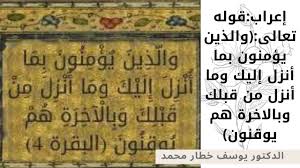 إعراب:قوله
تعالى:(والذين
يؤمنون بما
أنزل إليك وما
أنزل من قبلك
وبالاخرة هم
يوقنون)
وَالَّذِينَ يُؤْمِنُونَ بِمَا
أُنْزِلَ إِلَيْكَ وَمَا أُنْزِلَ مِنْ
قَبْلِكَ وَبِالْآخِرَةِ هُمْ
يُوقِنُونَ (البقرة 4)
الدكتور يوسف خطار محمد